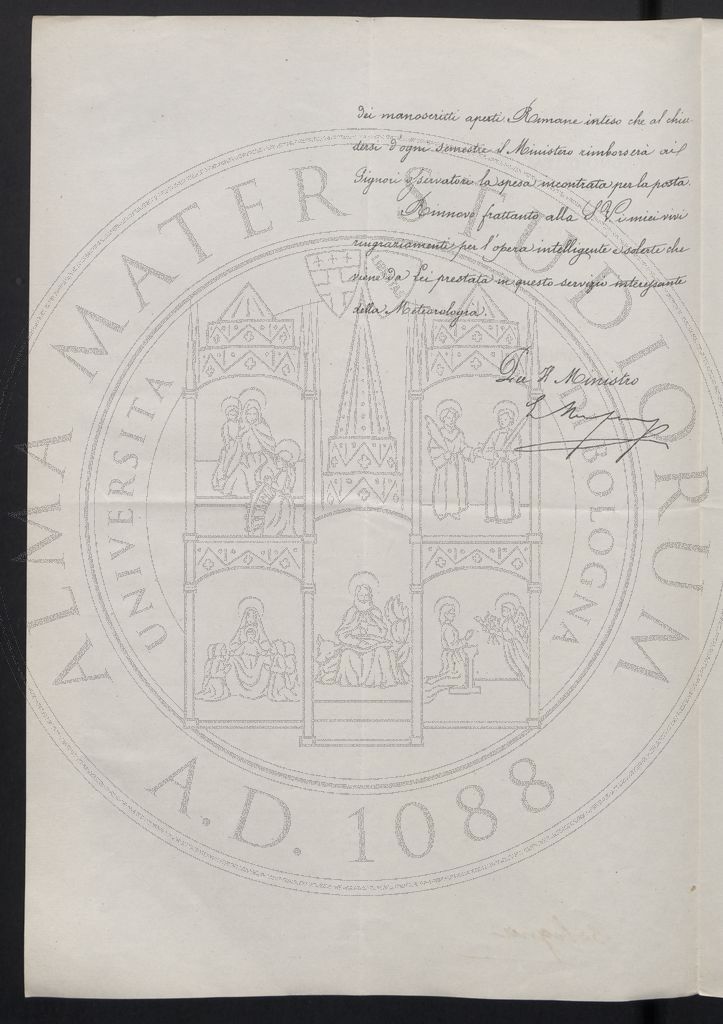 dei manoscritti aperti Rimane inteso che al chiu
dersi d'ogni semestre il Ministero rimborserà ai
Signori Osservatori la spesa incontrata per la posta.
Rinnovo frattanto alla S. V. i miei vivi
ringraziamenti per l'opera intelligente e solerte che
viene da Lei prestata in questo servizio interessante
della Meteorologia.
Il Ministro
ALMA MATER STUDIORUM
UNIVERSITA BOLOGNA
A.D. 1088